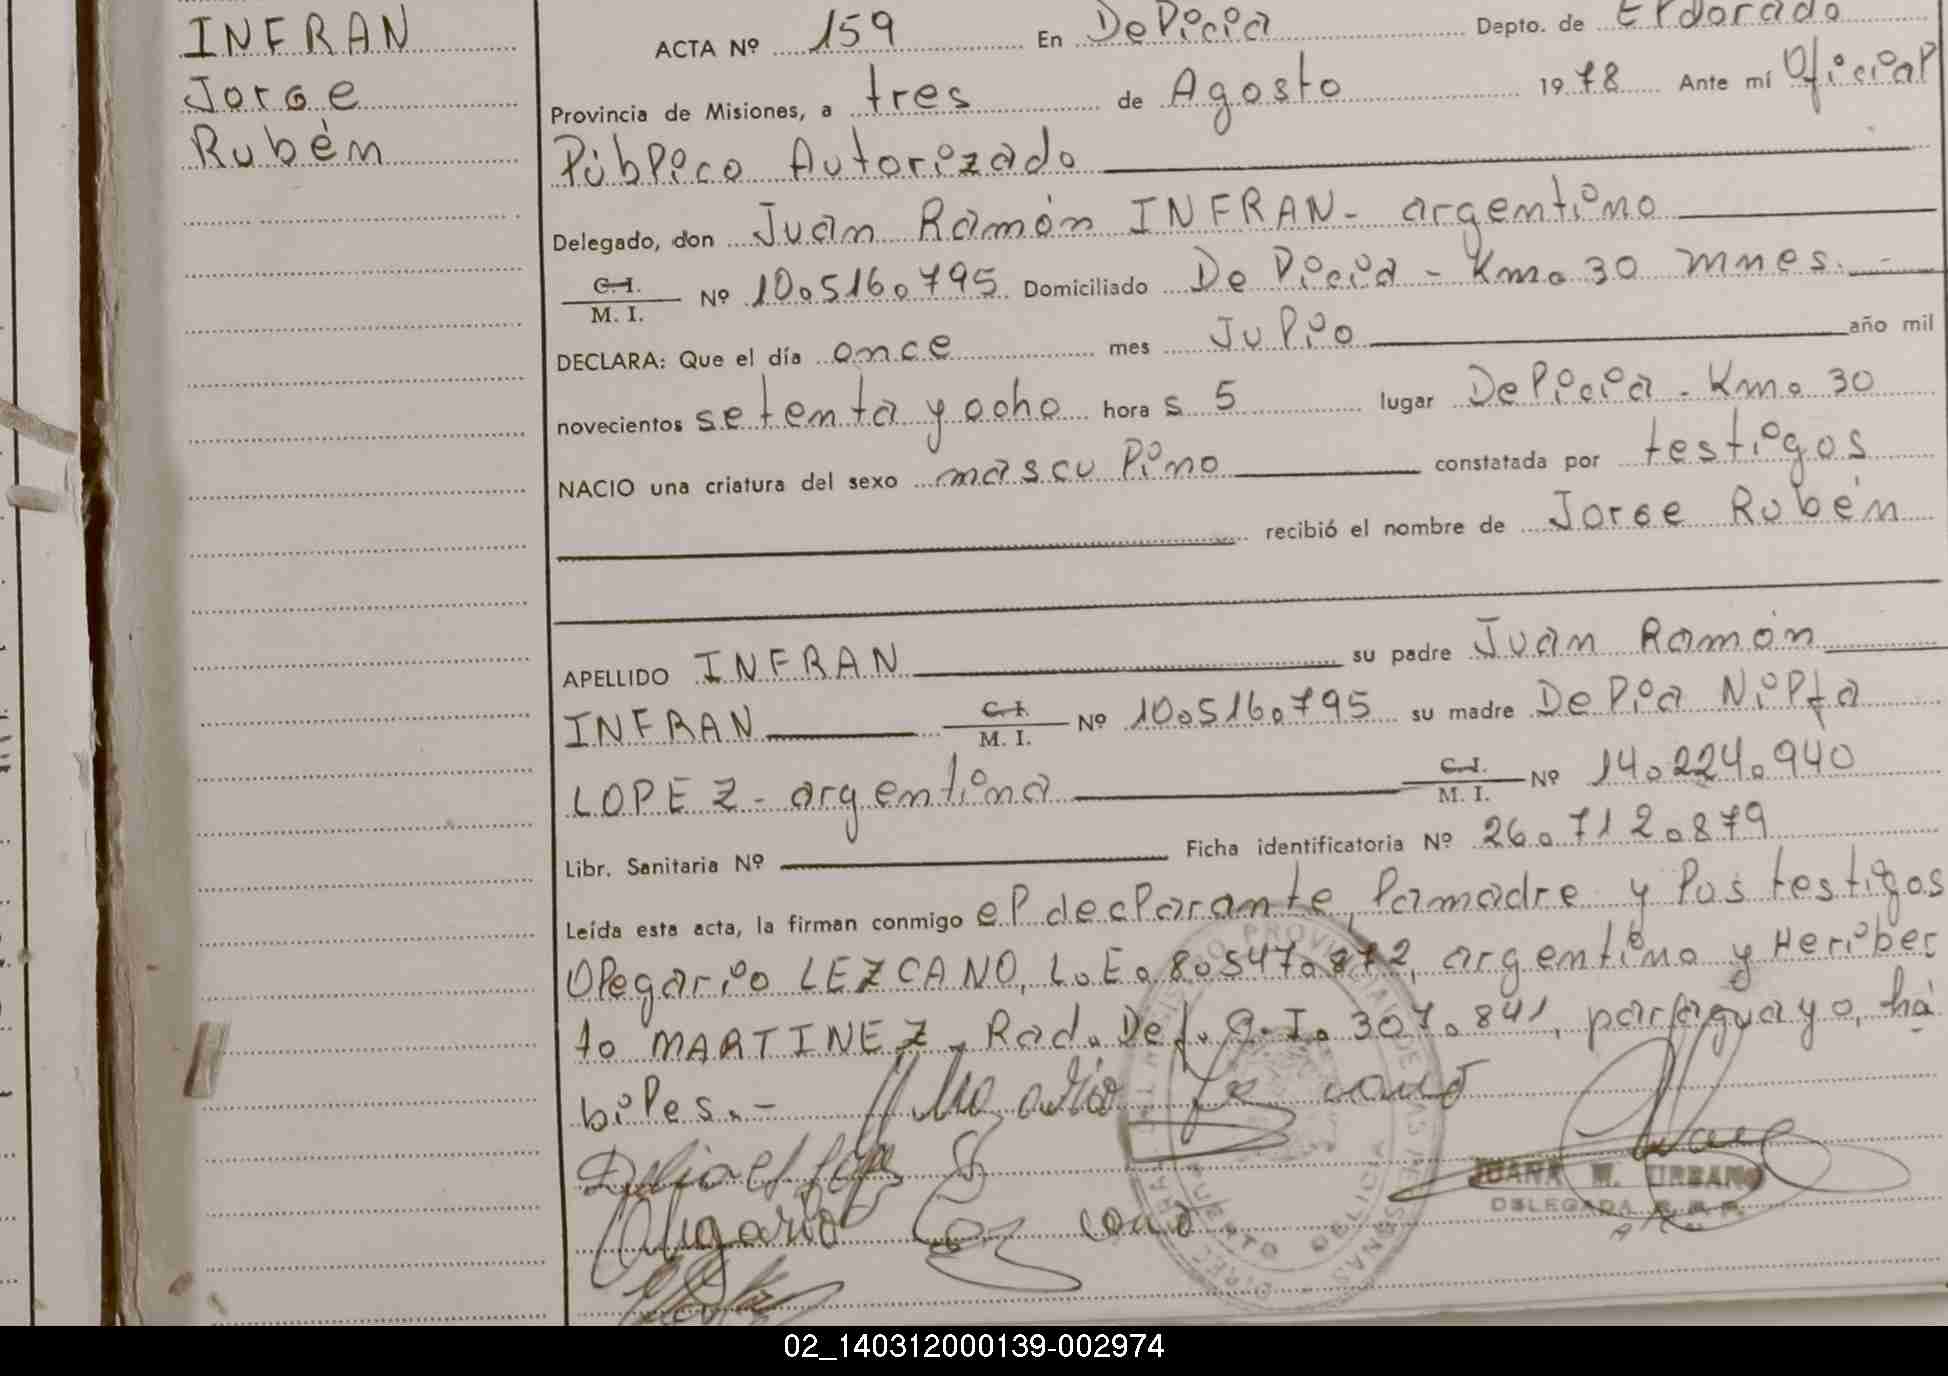 INFRAN
Jorge
Rubén
ACTA Nº 159 En Delicia Depto. de Eldorado
Provincia de Misiones, a tres de Agosto 1978 Ante mí Oficial
Público Autorizado
Delegado, don Juan Ramón INFRAN- argentino
C.I. / M. I. Nº 10.516.795 Domiciliado Delicia - Km. 30 mnes.-
DECLARA: Que el día once mes Julio año mil
novecientos setenta y ocho hora s 5 lugar Delicia - Km. 30
NACIO una criatura del sexo masculino constatada por testigos
recibió el nombre de Jorge Rubén
APELLIDO INFRAN su padre Juan Ramón
INFRAN C.I. / M. I. Nº 10.516.795 su madre Delia Nilfa
LOPEZ- argentina C.I. / M. I. Nº 14.224.940
Libr. Sanitaria Nº Ficha identificatoria Nº 26.712.879
Leída esta acta, la firman conmigo el declarante, la madre y los testigos
Olegario LEZCANO, L.E. 8.547.872, argentino y Heriber
to MARTINEZ, Rad. Def. C.I. 307.841, paraguayo, há
biles.-
JUANA M. URBANO
DELEGADA
PUERTO DELICIA
02_140312000139-002974